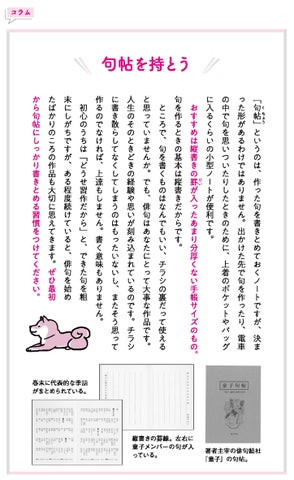 コラム
句帖を持とう
「句帖」というのは、作った句を書きとめておくノートですが、決ま
った形があるわけではありません。出かけた先で句を作ったり、電車
の中で句を思いついたりしたときのために、上着のポケットやバッグ
に入るくらいの小型ノートが便利です。
おすすめは縦書きの罫が入ったあまり分厚くない手帳サイズのもの。
句を作るときの基本は縦書きだからです。
ところで、句を書くものはなんでもいい、チラシの裏だって使える
と思っていませんか。でも、俳句はあなたにとって大事な作品です。
人生のそのときどきの経験や思いが刻み込まれているのです。チラシ
に書き散らしてなくしてしまうのはもったいないし、またそう思って
作るのでなければ、上達もしません。書く意味もありません。
初心のうちは「どうせ習作だから」と、できた句を粗
末にしがちですが、ある程度続けていると、俳句を始め
たばかりのころの作品も大切に思えてきます。ぜひ最初
から句帖にしっかり書きとめる習慣をつけてください。
巻末に代表的な季語
がまとめられている。
縦書きの罫線。左右に
童子メンバーの句が入
っている。
童子句帖
著者主宰の俳句結社
「童子」の句帖。